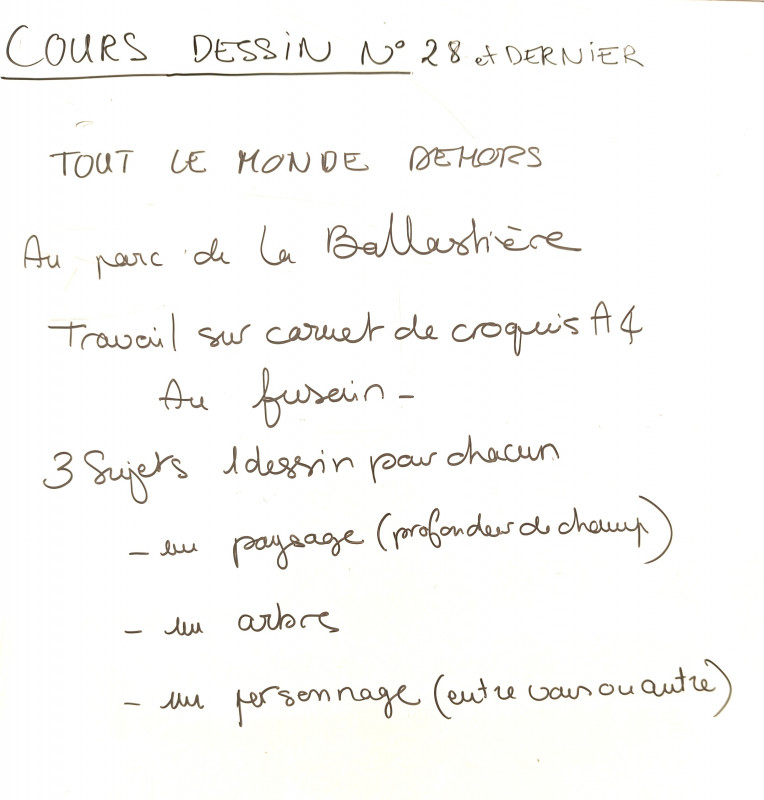 COURS DESSIN N° 28 et DERNIER
TOUT LE MONDE DEHORS
Au parc de la Ballastière
Travail sur carnet de croquis A4
Au fusain -
3 Sujets 1 dessin pour chacun
- un paysage (profondeur de champ)
- un arbre
- un personnage (entre vous ou autre)